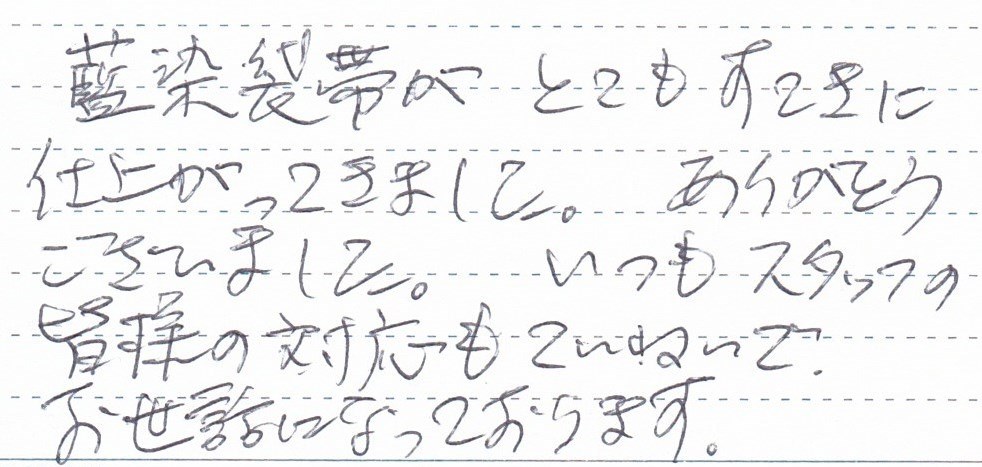 藍染袋帯がとてもすてきに
仕上がってきました。ありがとう
ございました。いつもスタッフの
皆様の対応もていねいで、
お世話になっております。